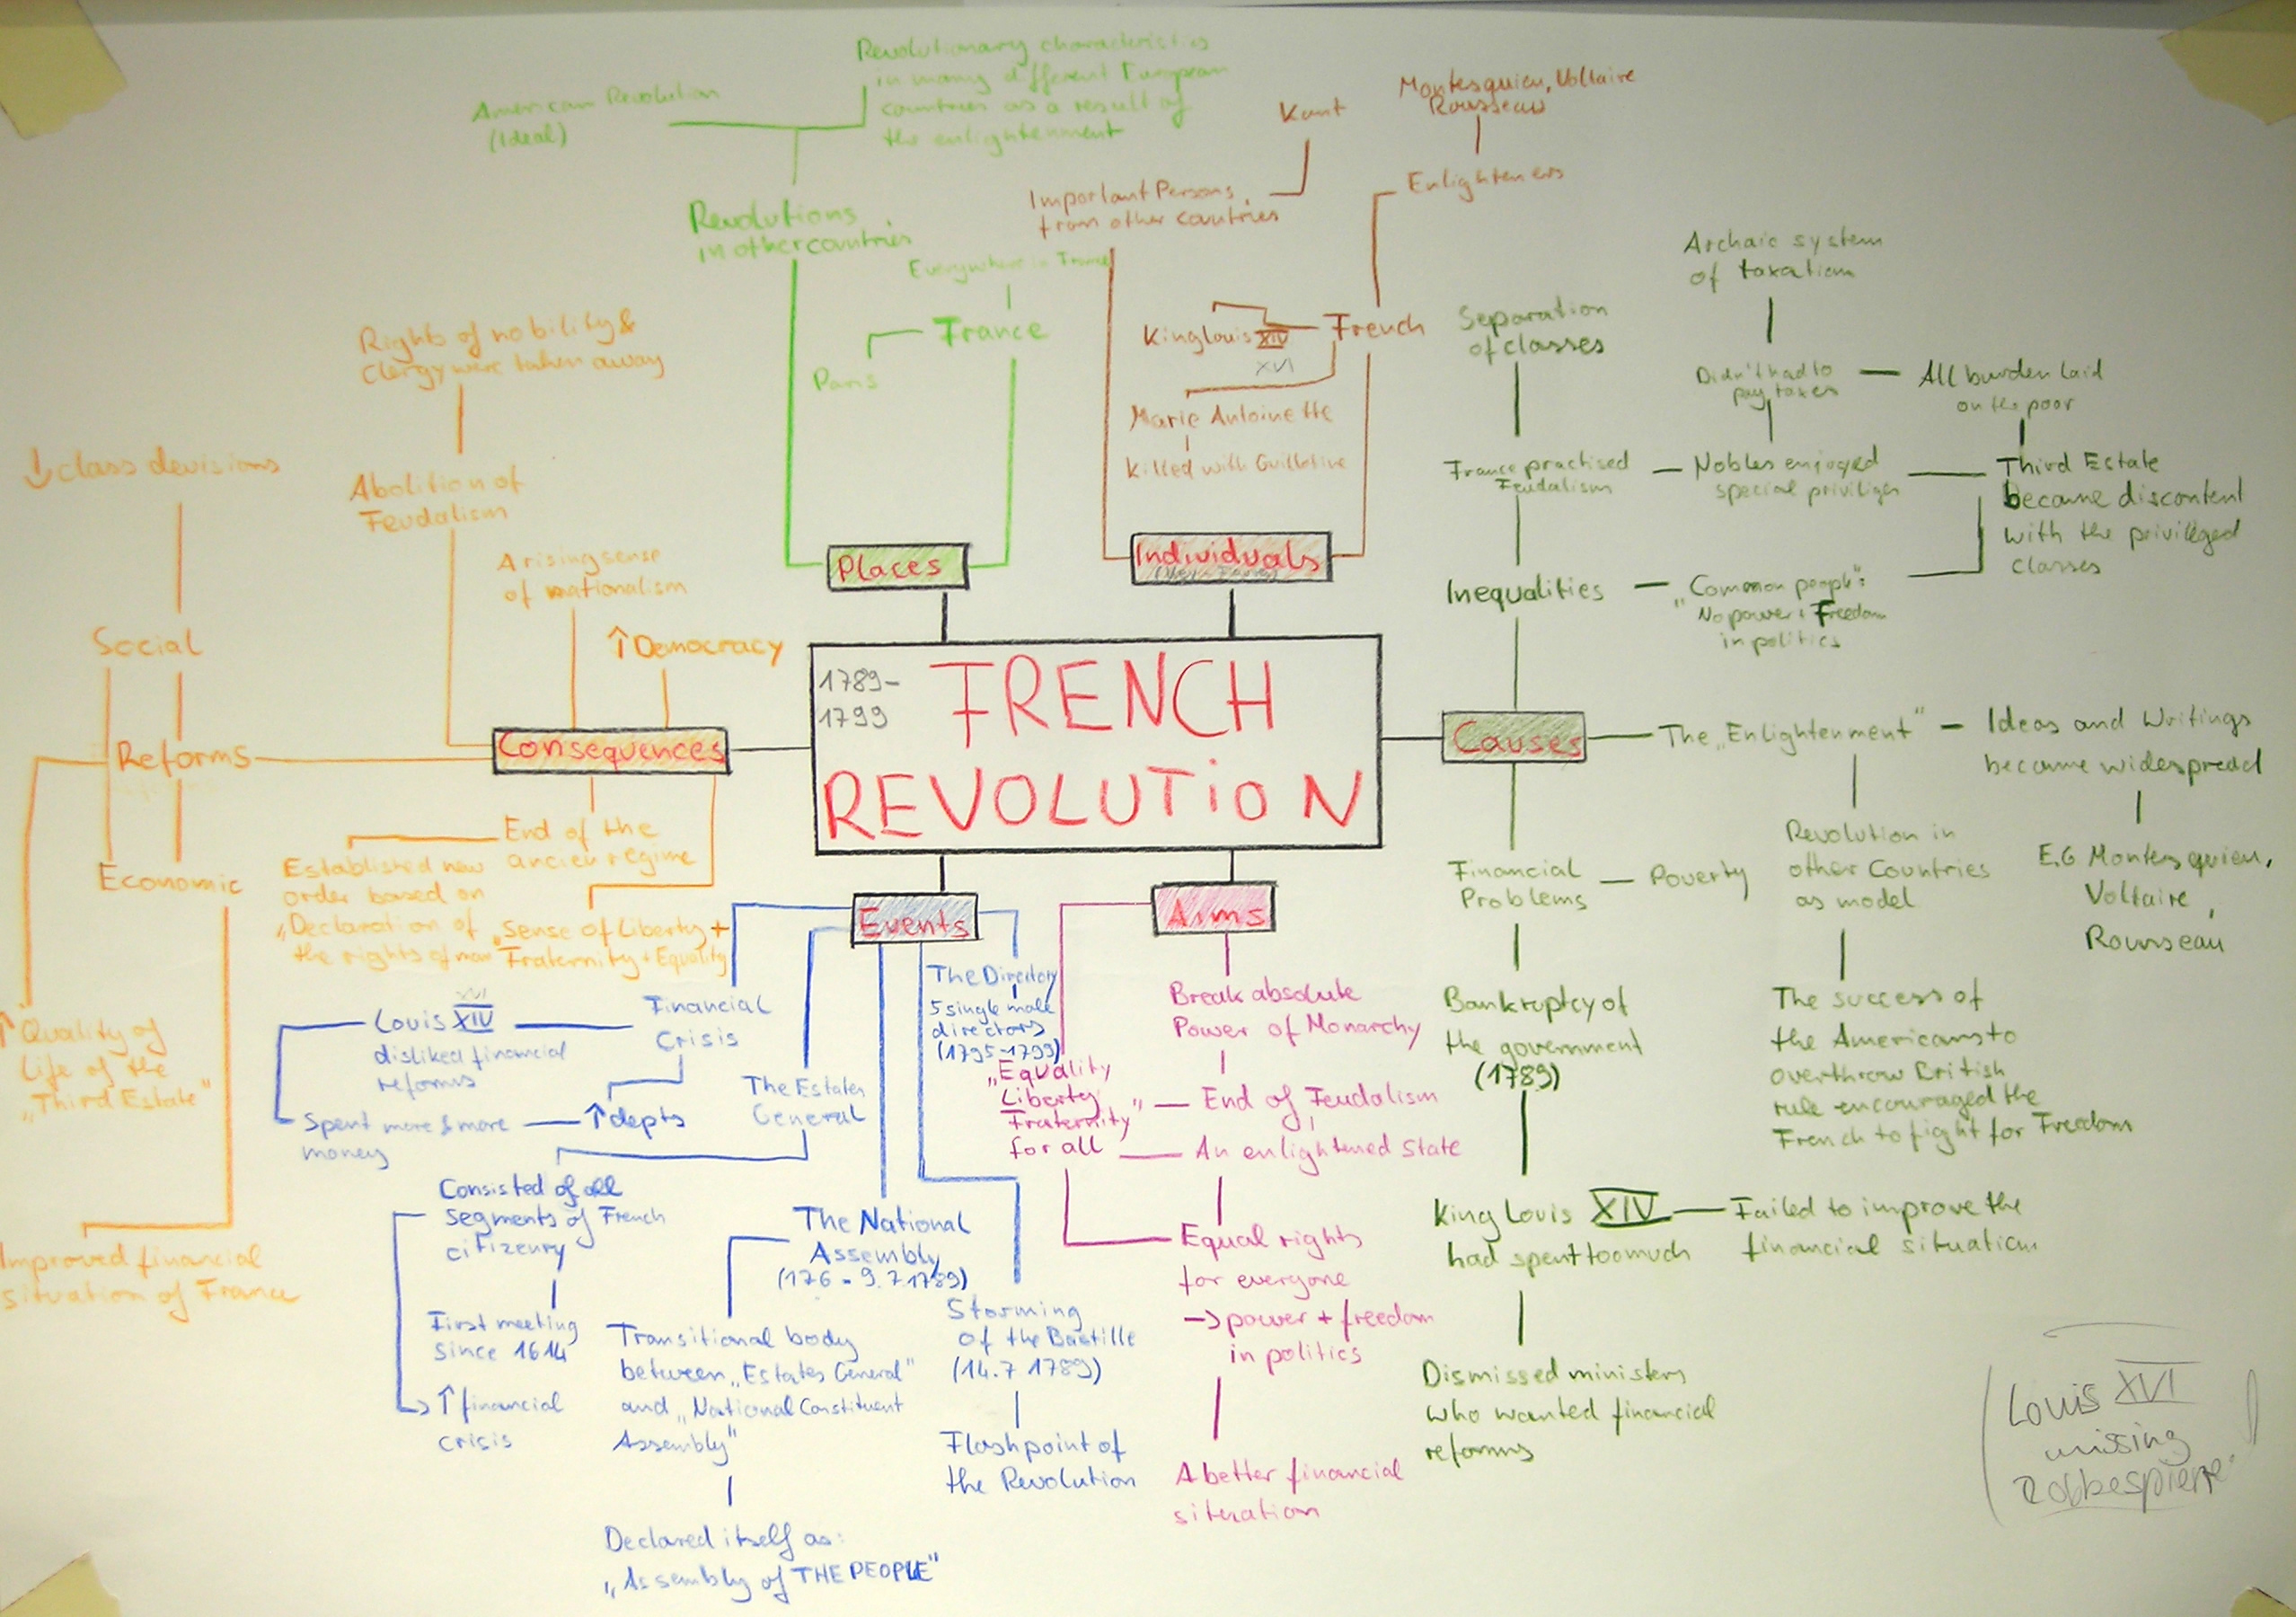 Revolutionary characteristics
in many different European
countries as a result of
the enlightenment
American Revolution
(Ideal)
Revolutions
in other countries
Everywhere in France
France
Paris
Places
Kant
Important Persons
from other countries
Montesquieu, Voltaire
Rousseau
Enlighteners
French
King Louis XIV
XVI
Marie Antoinette
Killed with Guillotine
Individuals
Separation
of classes
Archaic system
of taxation
Didn't had to
pay taxes
All burden laid
on the poor
France practised
Feudalism
Nobles enjoyed
special priviliges
Third Estate
became discontent
with the privileged
classes
Inequalities
"Common people":
No power + Freedom
in politics
Causes
The „Enlightenment"
Ideas and Writings
became widespread
E.G Montesquieu,
Voltaire,
Rousseau
Revolution in
other Countries
as model
The success of
the Americans to
overthrow British
rule encouraged the
French to fight for Freedom
Financial
Problems
Poverty
Bankruptcy of
the government
(1789)
King Louis XIV
had spent too much
Failed to improve the
financial situation
Dismissed ministers
who wanted financial
reforms
1789-
1799
FRENCH
REVOLUTION
Rights of nobility &
Clergy were taken away
Abolition of
Feudalism
A rising sense
of nationalism
↑ Democracy
Consequences
↓ class devisions
Social
Reforms
Economic
↑ Quality of
Life of the
„Third Estate"
Improved financial
situation of France
End of the
ancien regime
Established new
order based on
„Declaration of
the rights of man
„Sense of Liberty +
Fraternity + Equality
Events
Financial
Crisis
Louis XIV
XVI
disliked financial
reforms
Spent more & more
money
↑ depts
The Estates
General
Consisted of all
segments of French
citizenry
First meeting
since 1614
↑ financial
crisis
The National
Assembly
(17.6 - 9.7.1789)
Transitional body
between „Estates General"
and „National Constituent
Assembly"
Declared itself as:
„Assembly of THE PEOPLE"
The Directory
5 single male
directors
(1795-1799)
Storming
of the Bastille
(14.7 1789)
Flashpoint of
the Revolution
Aims
Break absolute
Power of Monarchy
„Equality
Liberty
Fraternity"
for all
End of Feudalism
An enlightened state
Equal rights
for everyone
→ power + freedom
in politics
A better financial
situation
Louis XVI
missing
Robbespierre